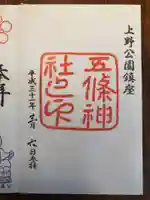 上野公園鎮座
五條神
社之印
平成三十一年
日参拝
奉拝